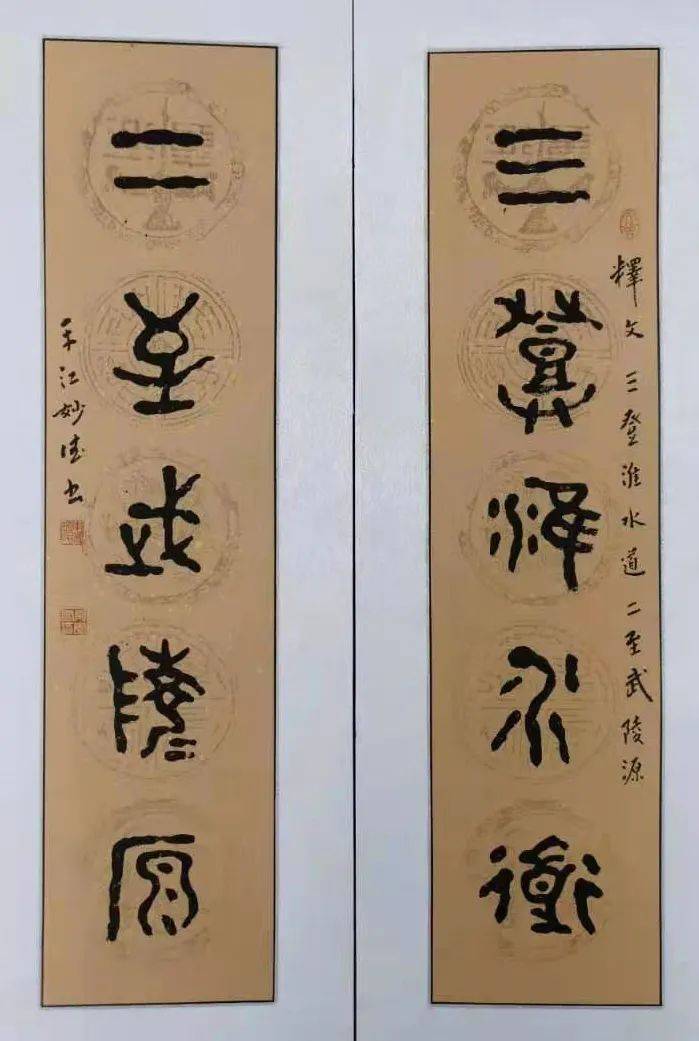 三登淮水道
釋文三登淮水道二至武陵源
二至武陵源